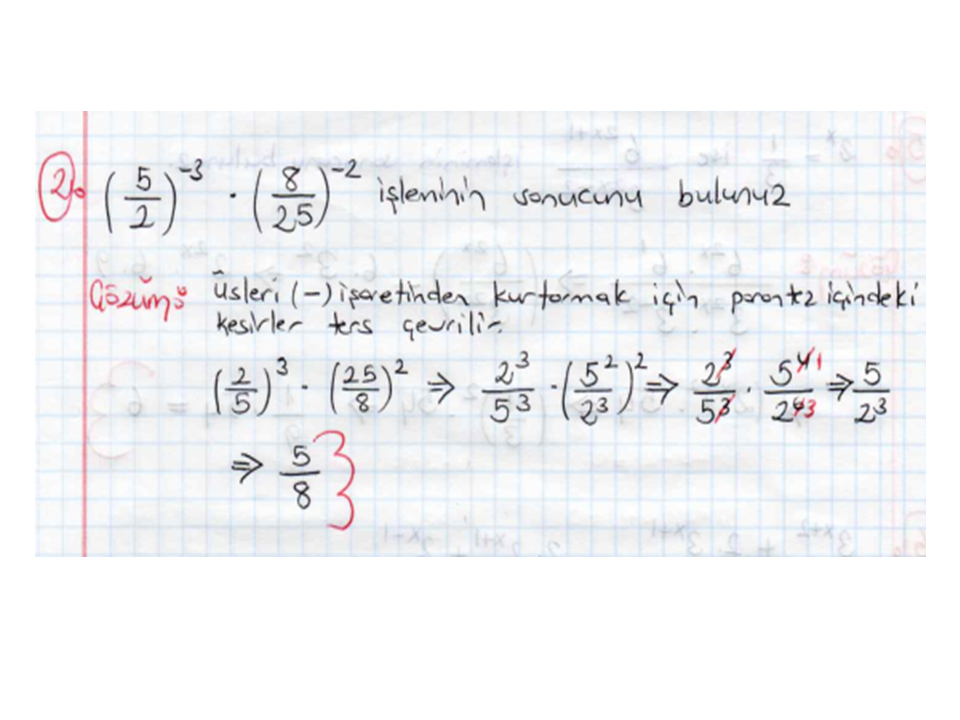 2. (5/2)^-3 · (8/25)^-2 işleminin sonucunu bulunuz
Çözüm: Üsleri (-) işaretinden kurtarmak için parantez içindeki
kesirler ters çevrilir.
(2/5)^3 · (25/8)^2 ⇒ 2^3/5^3 · (5^2/2^3)^2 ⇒ 2^3/5^3 · 5^4 1/2^6 3 ⇒ 5/2^3
⇒ 5/8